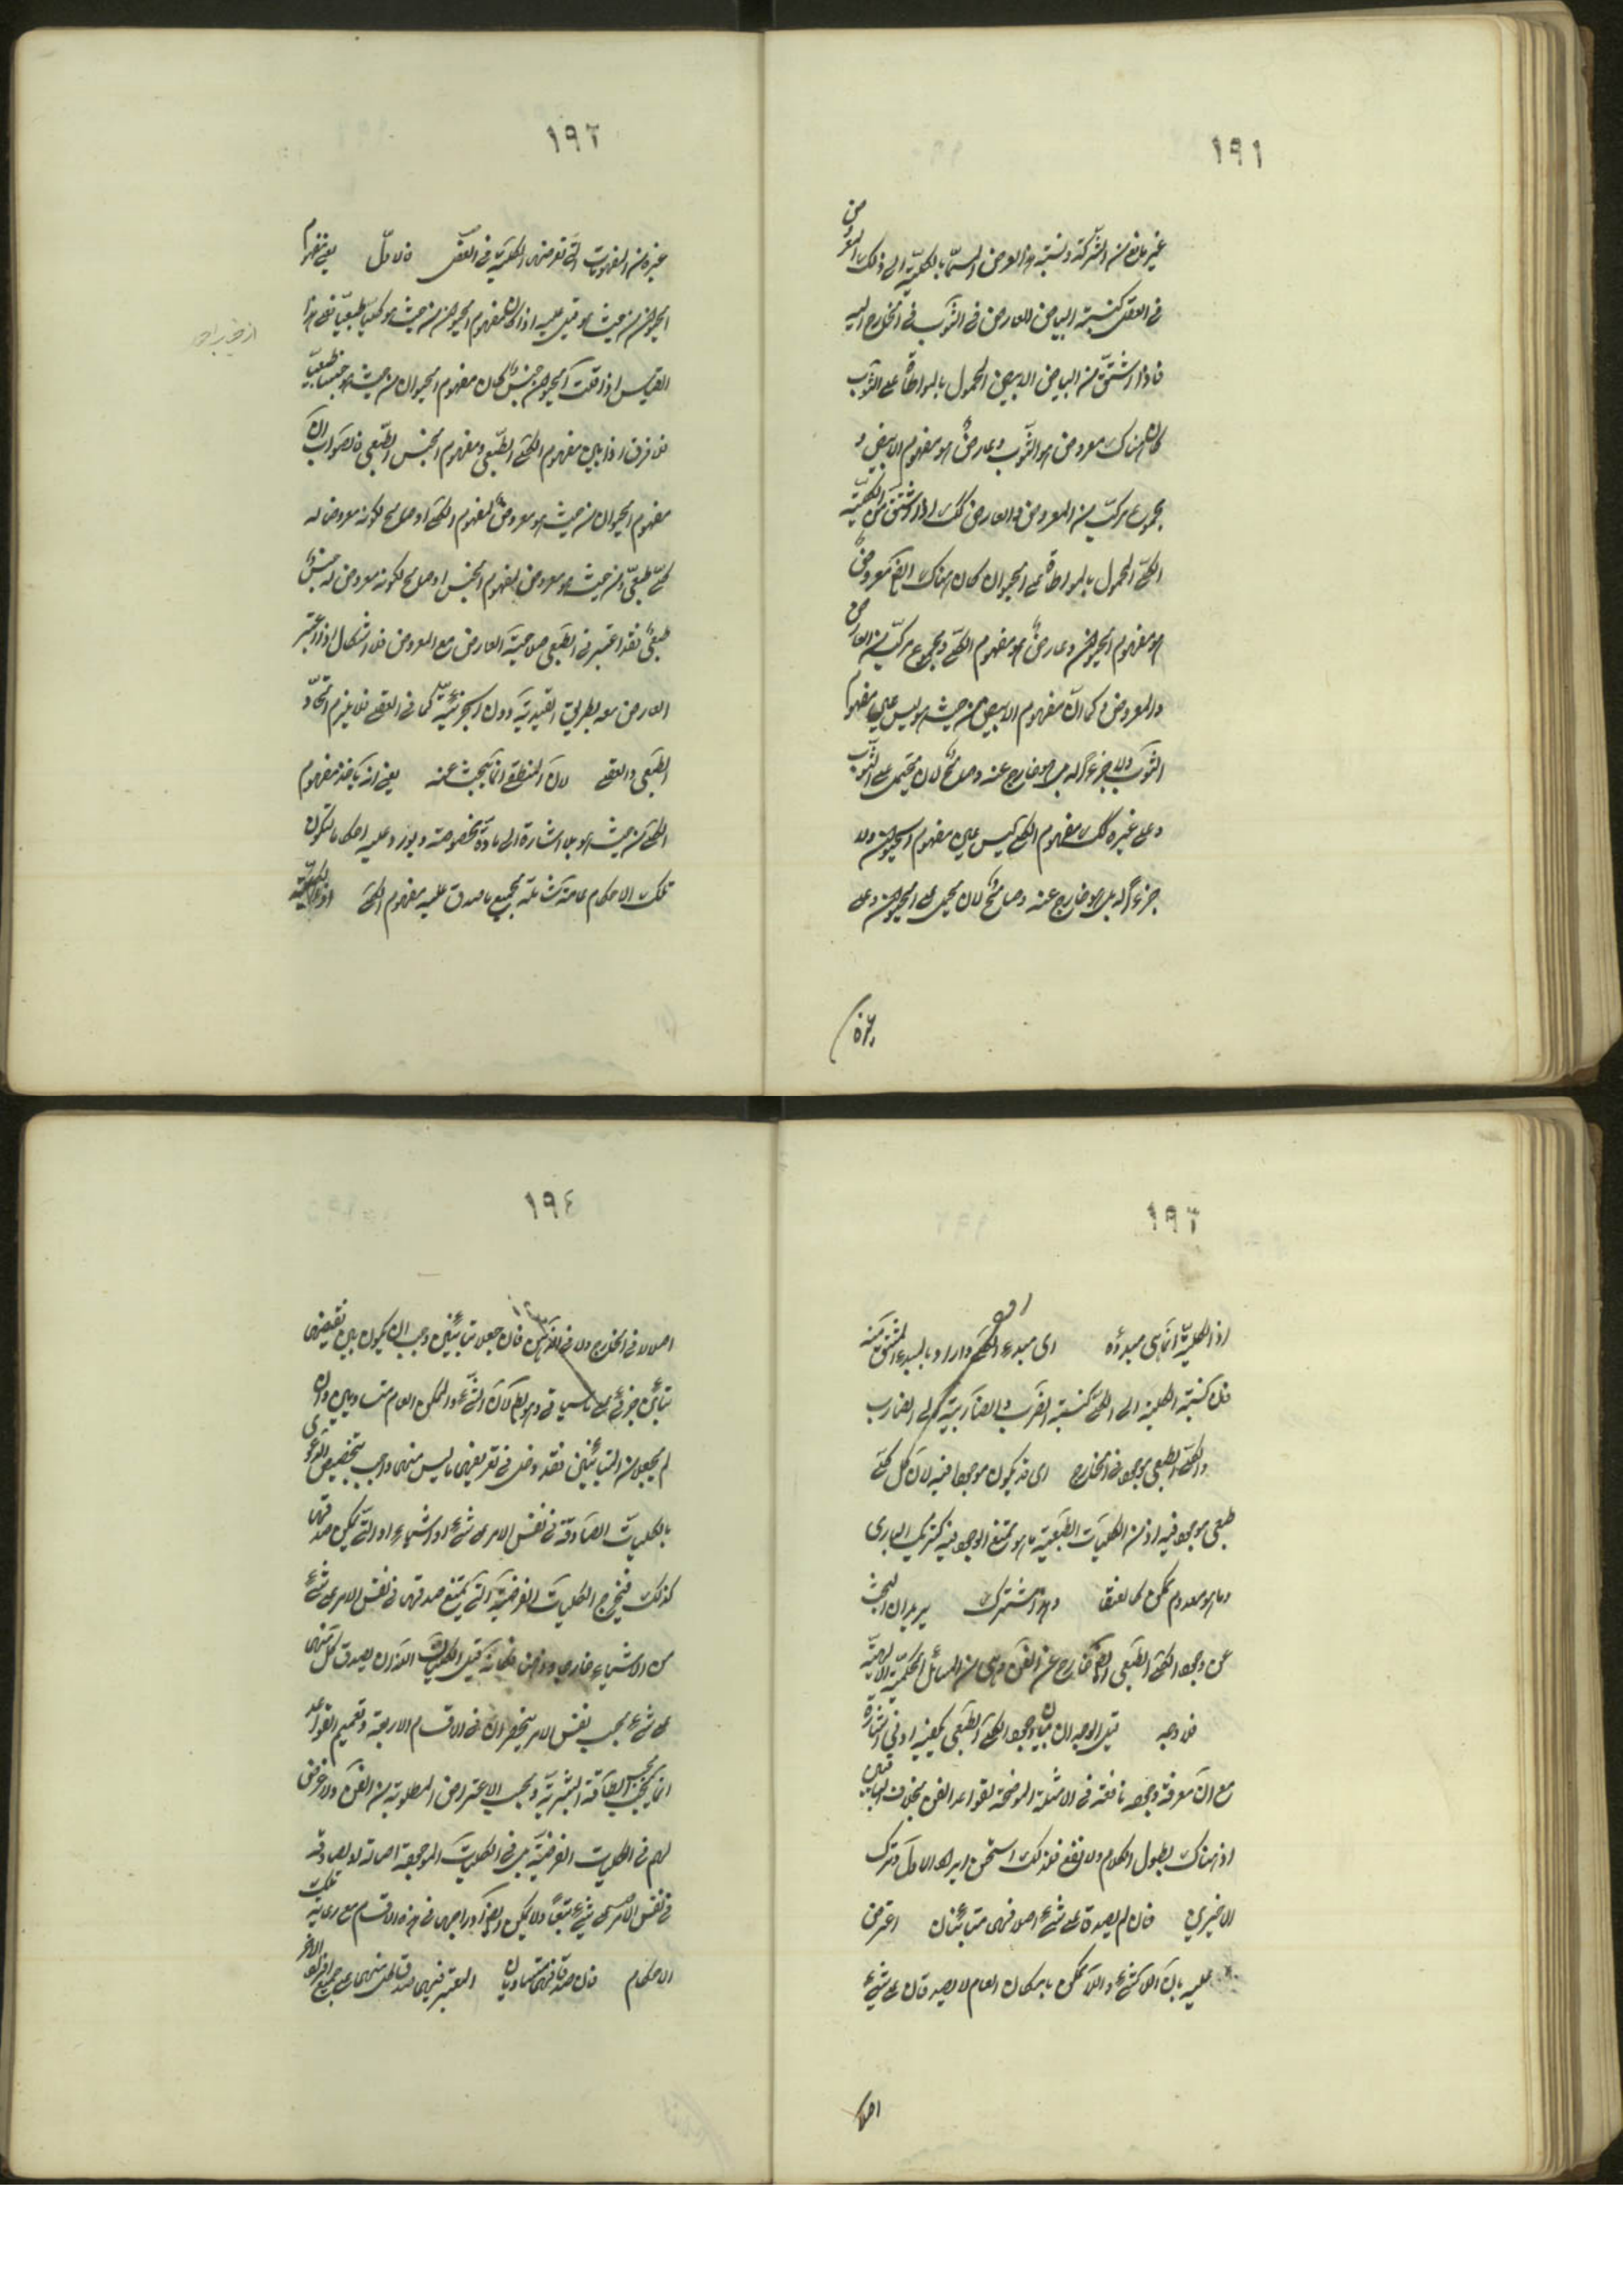 ١٩١
غير مانع من الشركة ونسبة هذا العرض المسمى بالكلية الى ذلك المعروض
في العقل كنسبة البياض العارض في الثوب في الخارج اليه
فاذا اشتق من البياض الابيض المحمول بالمواطاة على الثوب
كان هناك معروض هو الثوب وعارض هو مفهوم الابيض و
مجموع مركب من المعروض والعارض كذلك اذا اشتق من الكلية
الكلي المحمول بالمواطاة على الحيوان كان هناك ايضا معروض
هو مفهوم الحيوان وعارض هو مفهوم الكلي ومجموع مركب من العارض
والمعروض وكما ان مفهوم الابيض من حيث هو ليس عين مفهوم
الثوب ولا جزءا له بل هو خارج عنه وصالح لان يحمل على الثوب
وعلى غيره كذلك مفهوم الكلي ليس عين مفهوم الحيوان ولا
جزءا له بل هو خارج عنه وصالح لان يحمل على الحيوان وعلى
غيره
١٩٢
غيره من المفهومات التي تعرضها الكلية في العقل فالاول يعني مفهوم
الحيوان من حيث هو قيل عليه اذا كان مفهوم الحيوان من حيث هو كليا طبيعيا فعلى هذا
القياس اذا قلت الحيوان جنس كان مفهوم الحيوان من حيث هو جنسا طبيعيا
فلا فرق اذا بين مفهوم الكلي الطبيعي ومفهوم الجنس الطبيعي فالصواب ان
مفهوم الحيوان من حيث هو معروض لمفهوم الكلي او صالح لكونه معروضا له
كلي طبيعي ومن حيث هو معروض لمفهوم الجنس او صالح لكونه معروض له جنس
طبيعي فقد اعتبر في الطبيعي صلاحية العارض مع المعروض فلا اشكال اذا اعتبر
العارض معه بطريق القيدية دون الجزئية كما في العقلي فلا يلزم اتحاد
الطبيعي والعقلي لان المنطقي انما يبحث عنه يعني انه ياخذ مفهوم
الكلي من حيث هو بلا اشارة الى مادة مخصوصة ويورد عليه احكاما لتكون
تلك الاحكام عامة شاملة لجميع ما صدق عليه مفهوم الكلي اذ الكلية
١٩٣
اذ الكلية انما هي مبدؤه اى مبدء الكلي واراد بالمبدء المشتق منه
فان نسبة الكلية الى الكلي كنسبة الضرب والضاربية الى الضارب
والكلي الطبيعي موجود في الخارج اى قد يكون موجودا فيه لا ان كل كلي
طبيعي موجود فيه اذ من الكليات الطبيعية ما هو ممتنع الوجود فيه كشريك البارى
وما هو معدوم ممكن كالعنقا وهذا مشترك يريد ان البحث
عن وجود الكلي الطبيعي ايضا خارج عن الفن وهي من المسائل الحكمية الالهية
فلا وجه قيل الوجه ان بيان وجود الكلي الطبيعي يكفيه ادنى اشارة
مع ان معرفة وجوده نافعة في الامثلة الموضحة لقواعد الفن بخلاف الباقيين
اذ هناك يطول الكلام ولا نفع فلذلك استحسن ايراد الاول وترك
الاخيرين فان لم يصدقا على شيء اصلا فهما متباينان اعترض
عليه بان اللاشيء واللاممكن بامكان العام لا يصدقان على شيء
اصلا
١٩٤
اصلا لا في الخارج ولا في الذهن فان جعلا متباينين وجب ان يكون بين نقيضهما
تباين جزئي على ما سياتي وهو بط لان الشيء والممكن العام متساويين وان
لم يجعلا من المتباينين فقد دخل في تعريفهما ما ليس منهما واجيب بتخصيص الدعوى
بالكليات الصادقة في نفس الامر على شيء او اشياء او التي يمكن صدقها
كذلك فيخرج الكليات الفرضية التي يمتنع صدقها في نفس الامر على شيء
من الاشياء خارجا وذهنا فكانه قيل الكليات اللذان يصدق كل منهما
على شيء بحسب نفس الامر ينحصران في الاقسام الاربعة وتعميم القواعد
انما يجب بحسب الطاقة البشرية وبحسب الاعتراض المطلوبة من الفن ولا غرض
لهم في الكليات الفرضية بل في الكليات الموجودة اصالة او الصادقة
في نفس الامر على شيء تبعا ولا يمكن ايضا ادراجها في هذه الاقسام مع رعاية تلك
الاحكام فان صدقا فهما متساويان المعتبر فيهما صدق كل منهما على جميع افراد الاخر